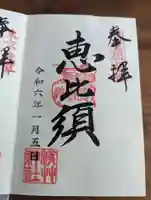 奉拝
恵比須
令和六年一月五日
奉拝